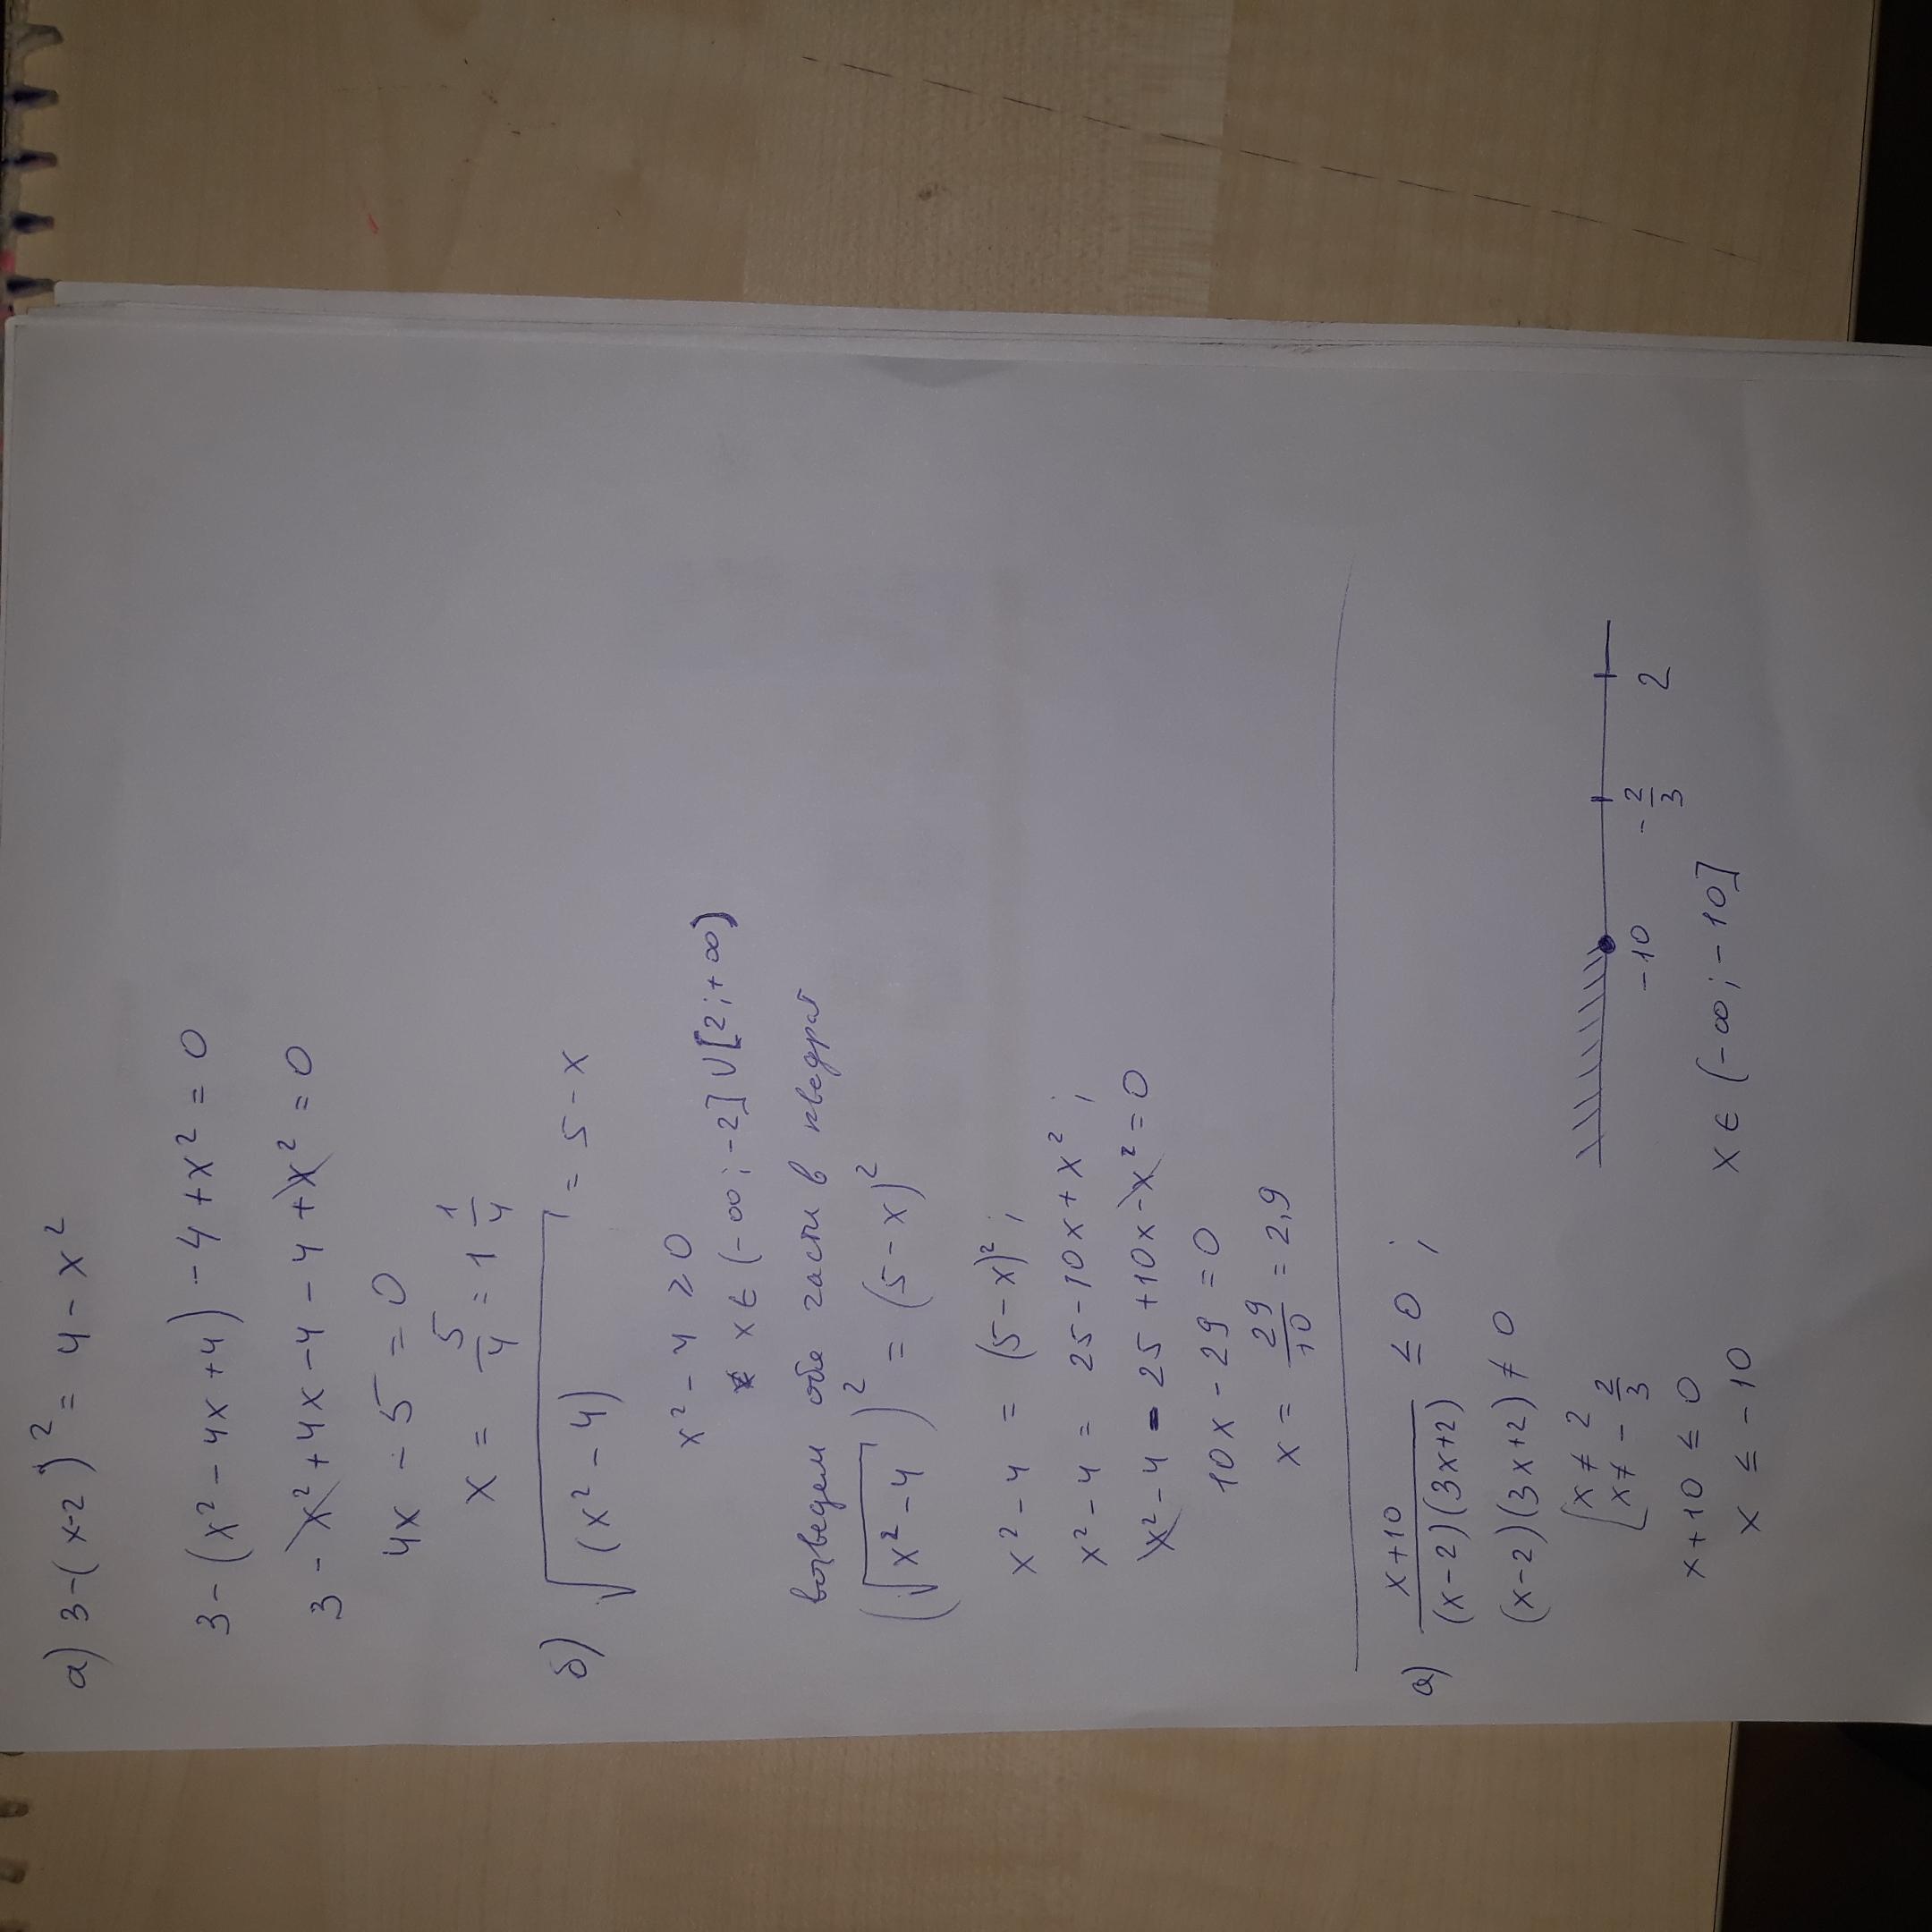 а) 3-(x-2)² = 4 - x²
3 - (x² - 4x + 4) - 4 + x² = 0
3 - x² + 4x - 4 - 4 + x² = 0
4x - 5 = 0
x = 5/4 = 1 1/4
б) √(x² - 4) = 5 - x
x² - 4 ≥ 0
x ∈ (-∞; -2] ∪ [2; +∞)
возведем обе части в квадрат
(√x² - 4)² = (5 - x)²
x² - 4 = (5 - x)²;
x² - 4 = 25 - 10x + x²;
x² - 4 - 25 + 10x - x² = 0
10x - 29 = 0
x = 29/10 = 2,9
а) x+10/(x-2)(3x+2) ≤ 0;
(x-2)(3x+2) ≠ 0
[x ≠ 2
x ≠ - 2/3
x + 10 ≤ 0
x ≤ -10
-10 - 2/3 2
x ∈ (-∞; -10]